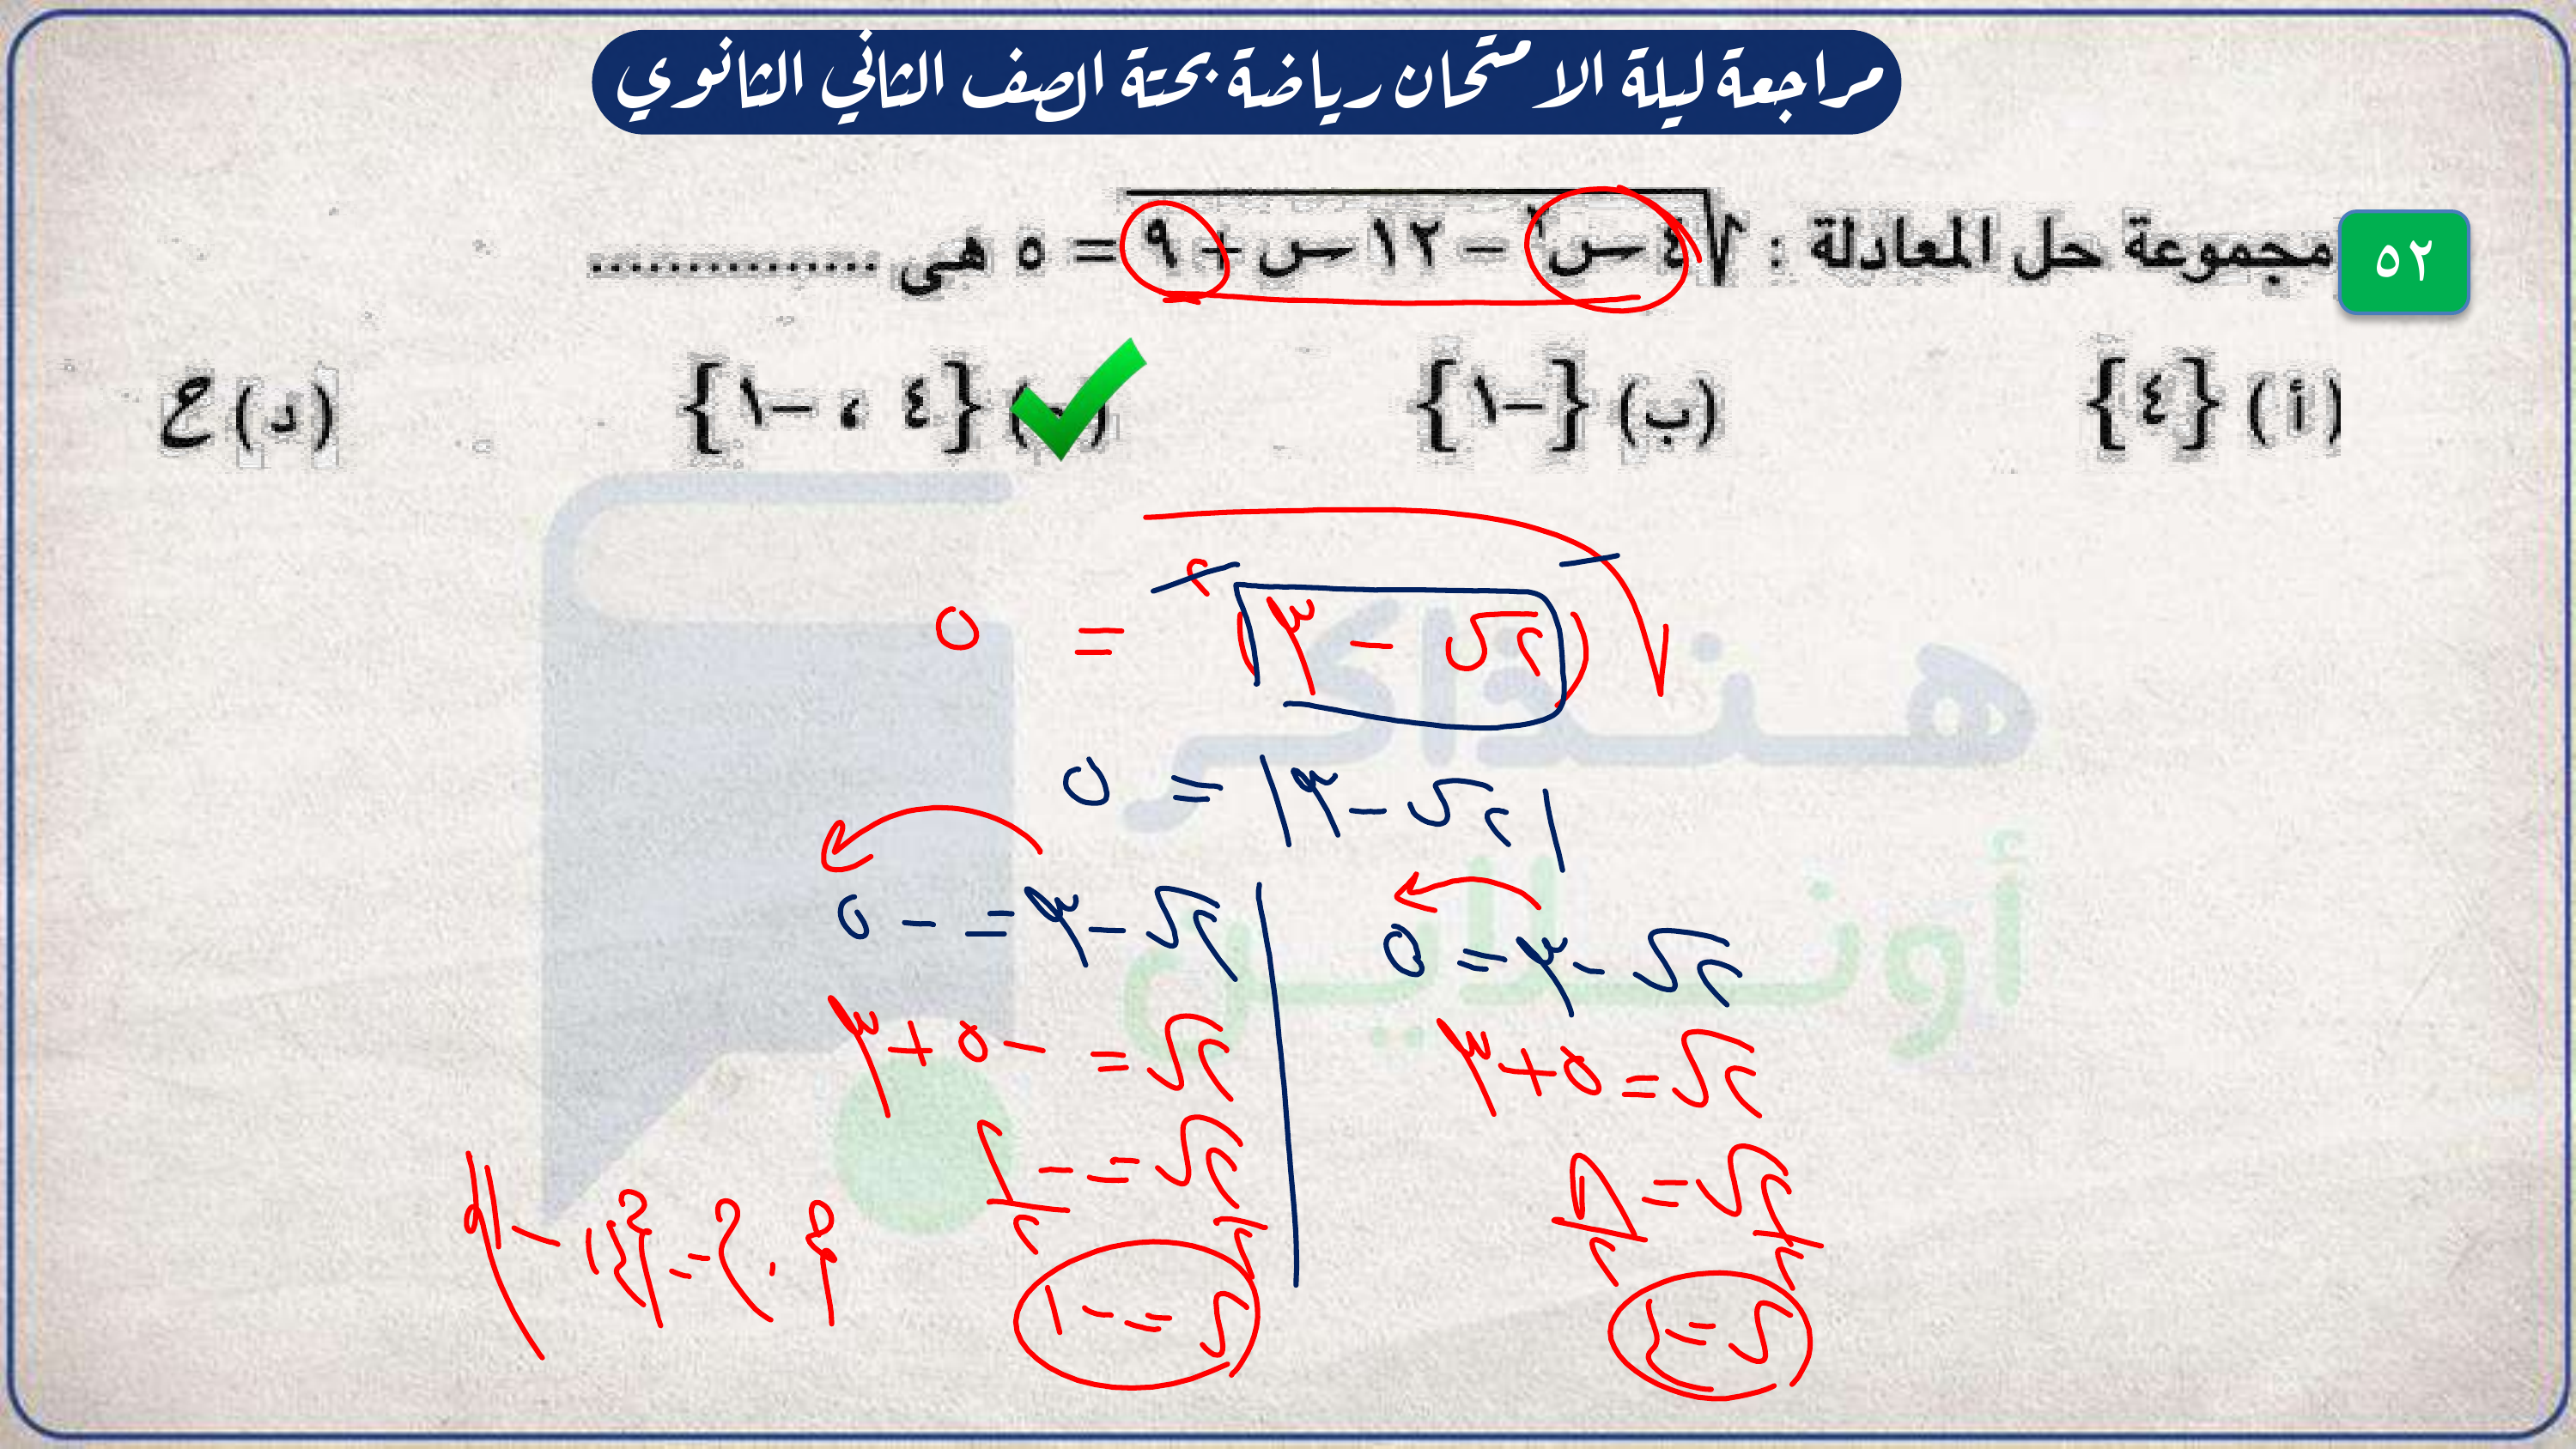 مراجعة ليلة الامتحان رياضة بحتة الصف الثاني الثانوي
٥٢ مجموعة حل المعادلة : √٤ س٢ – ١٢ س + ٩ = ٥ هى ..............
(أ) {٤} (ب) {–١} {٤ ، –١} (د) ح
√(٢س – ٣)٢ = ٥
|٢س – ٣| = ٥
٢س – ٣ = ٥ ٢س – ٣ = – ٥
٢س = ٥ + ٣ ٢س = – ٥ + ٣
٢س/٢ = ٨/٢ ٢س/٢ = – ٢/٢
س = ٤ س = – ١
هنذاكر
أونلاين